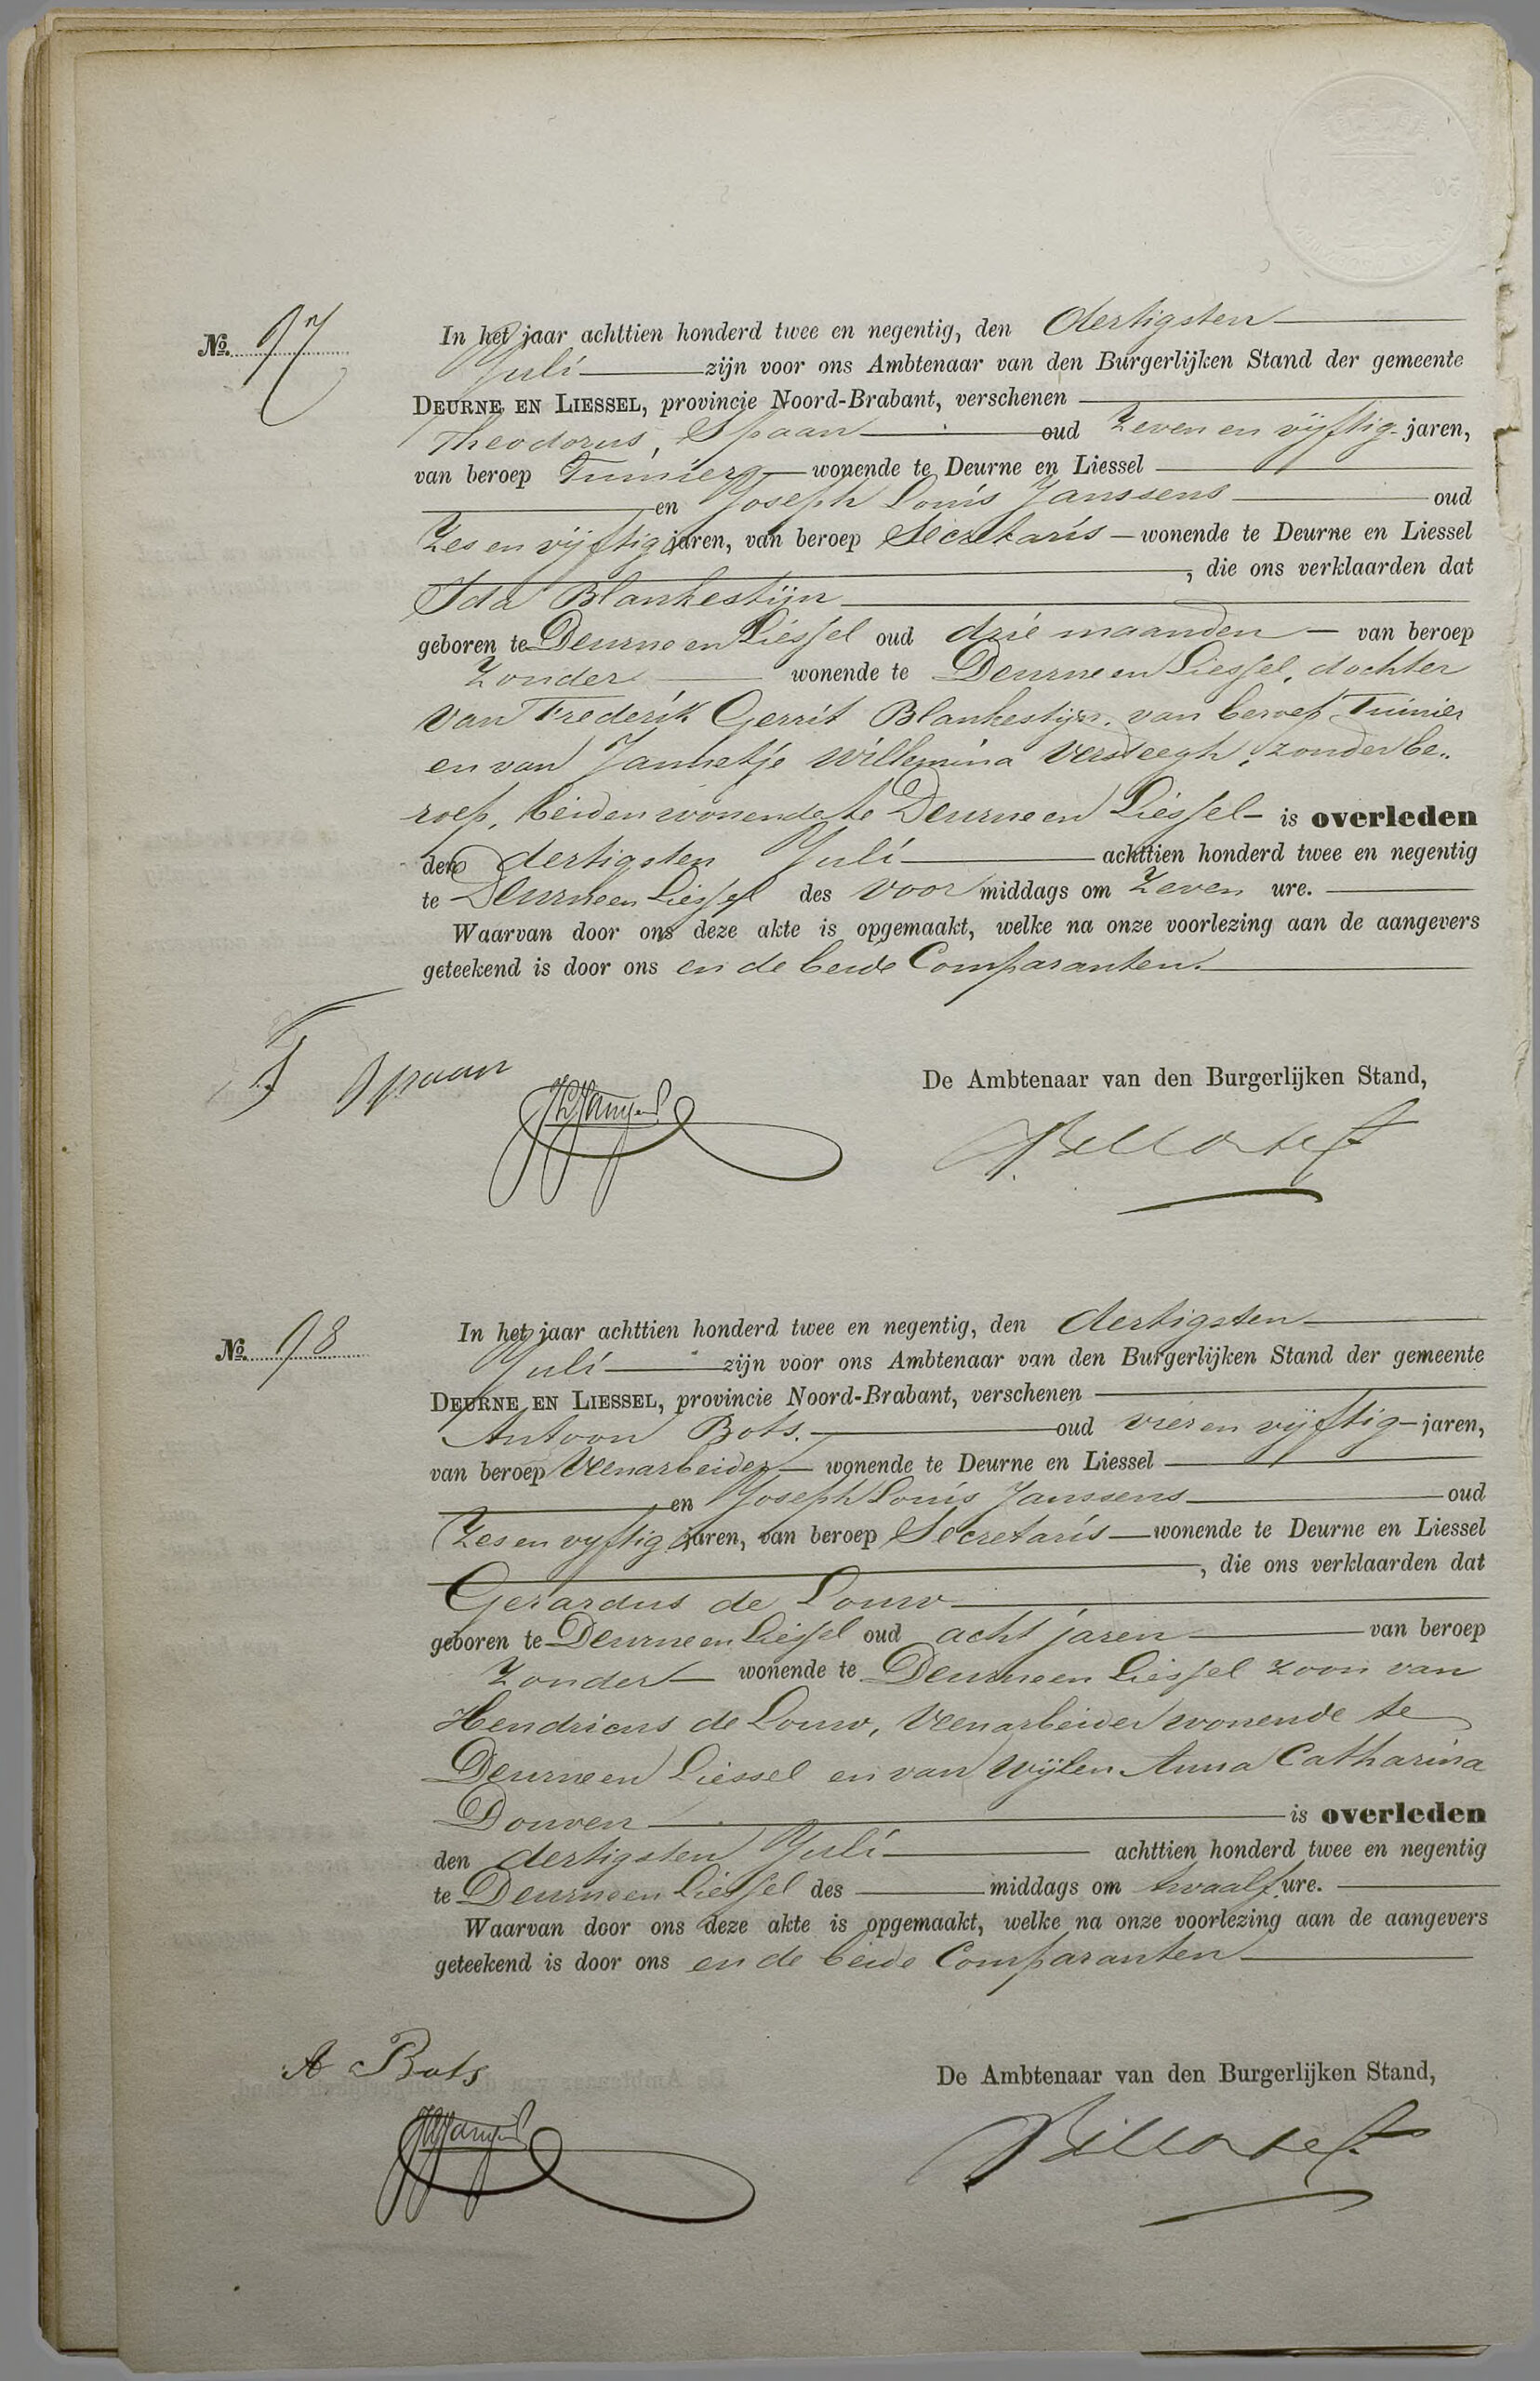 No. 97
In het jaar achttien honderd twee en negentig, den dertigsten
Juli zijn voor ons Ambtenaar van den Burgerlijken Stand der gemeente
DEURNE EN LIESSEL, provincie Noord-Brabant, verschenen
Theodorus, Spaan oud Zeven en vijftig jaren,
van beroep Tuinier wonende te Deurne en Liessel
en Joseph Louis Janssens oud
Zes en vijftig jaren, van beroep Secretaris wonende te Deurne en Liessel
, die ons verklaarden dat
Ida Blankestijn
geboren te Deurne en Liessel oud drie maanden van beroep
Zonder wonende te Deurne en Liessel, dochter
van Frederik Gerrit Blankestijn, van beroep Tuinier
en van Jannetje Willemina Versteegh, zonder be„
roep, beiden wonende te Deurne en Liessel is overleden
den dertigsten Juli achttien honderd twee en negentig
te Deurne en Liessel des voor middags om Zeven ure.
Waarvan door ons deze akte is opgemaakt, welke na onze voorlezing aan de aangevers
geteekend is door ons en de beide Comparanten.
T Spaan
De Ambtenaar van den Burgerlijken Stand,
No. 98
In het jaar achttien honderd twee en negentig, den dertigsten
Juli zijn voor ons Ambtenaar van den Burgerlijken Stand der gemeente
DEURNE EN LIESSEL, provincie Noord-Brabant, verschenen
Antoon Bots. oud vier en vijftig jaren,
van beroep Veenarbeider wonende te Deurne en Liessel
en Joseph Louis Janssens oud
Zes en vyftig jaren, van beroep Secretaris wonende te Deurne en Liessel
, die ons verklaarden dat
Gerardus de Louw
geboren te Deurne en Liessel oud acht jaren van beroep
Zonder wonende te Deurne en Liessel zoon van
Hendricus de Louw, Veenarbeider wonende te
Deurne en Liessel en van wijlen Anna Catharina
Douven is overleden
den dertigsten Juli achttien honderd twee en negentig
te Deurne en Liessel des middags om twaalf ure.
Waarvan door ons deze akte is opgemaakt, welke na onze voorlezing aan de aangevers
geteekend is door ons en de beide Comparanten
A Bots
De Ambtenaar van den Burgerlijken Stand,